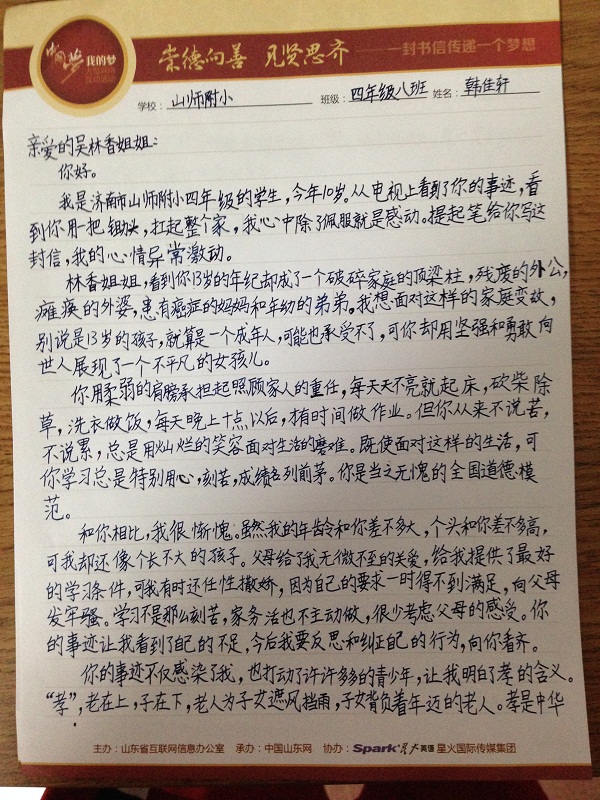 中国梦 我的梦
崇德向善 见贤思齐 —— 一封书信传递一个梦想
学校：山师附小 班级：四年级八班 姓名：韩佳轩
亲爱的吴林香姐姐：
你好。
我是济南市山师附小四年级的学生，今年10岁。从电视上看到了你的事迹，看
到你用一把锄头，扛起整个家，我心中除了佩服就是感动。提起笔给你写这
封信，我的心情异常激动。
林香姐姐，看到你13岁的年纪却成了一个破碎家庭的顶梁柱，残废的外公，
瘫痪的外婆，患有癌症的妈妈和年幼的弟弟。我想面对这样的家庭变故，
别说是13岁的孩子，就算是一个成年人，可能也承受不了，可你却用坚强和勇敢向
世人展现了一个不平凡的女孩儿。
你用柔弱的肩膀承担起照顾家人的重任，每天天不亮就起床，砍柴除
草，洗衣做饭，每天晚上十点以后，才有时间做作业。但你从来不说苦，
不说累，总是用灿烂的笑容面对生活的磨难。既使面对这样的生活，可
你学习总是特别用心，刻苦，成绩名列前茅。你是当之无愧的全国道德模
范。
和你相比，我很惭愧。虽然我的年龄和你差不多大，个头和你差不多高，
可我却还像个长不大的孩子。父母给了我无微不至的关爱，给我提供了最好
的学习条件，可我有时还任性撒娇，因为自己的要求一时得不到满足，向父母
发牢骚。学习不是那么刻苦，家务活也不主动做，很少考虑父母的感受。你
的事迹让我看到了自己的不足，今后我要反思和纠正自己的行为，向你看齐。
你的事迹不仅感染了我，也打动了许许多多的青少年，让我明白了孝的含义。
“孝”，老在上，子在下，老人为子女遮风挡雨，子女背负着年迈的老人。孝是中华
主办：山东省互联网信息办公室 承办：中国山东网 协办：Spark 星火英语 星火国际传媒集团